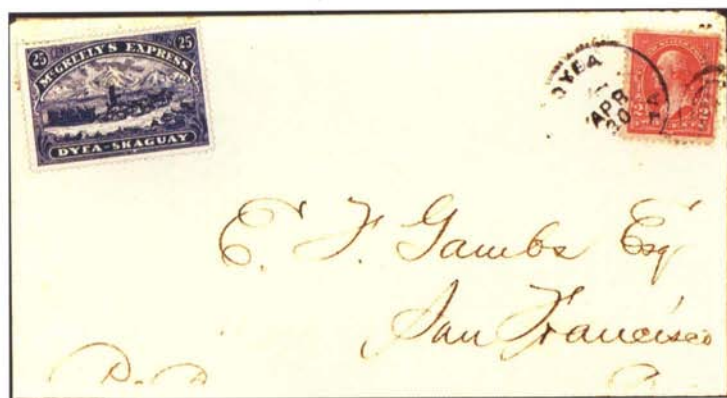 25 McGREELY'S EXPRESS 25
DYEA-SKAGUAY
DYEA
APR
20
2 2
E. F. Gambs Esq
San Francisco